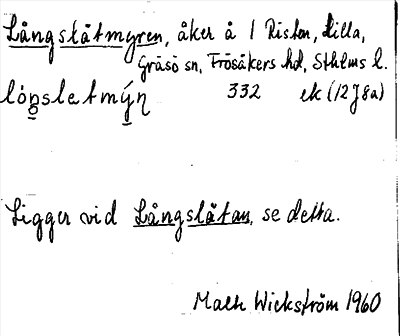 Långslåtmyren, åker å 1 Risten, Lilla,
Gräsö sn, Frösåkers hd, Sthlms l.
lóŋsletmýn 332 ek (12J8a)
Ligger vid Långslåtan, se detta.
Wickström 1960